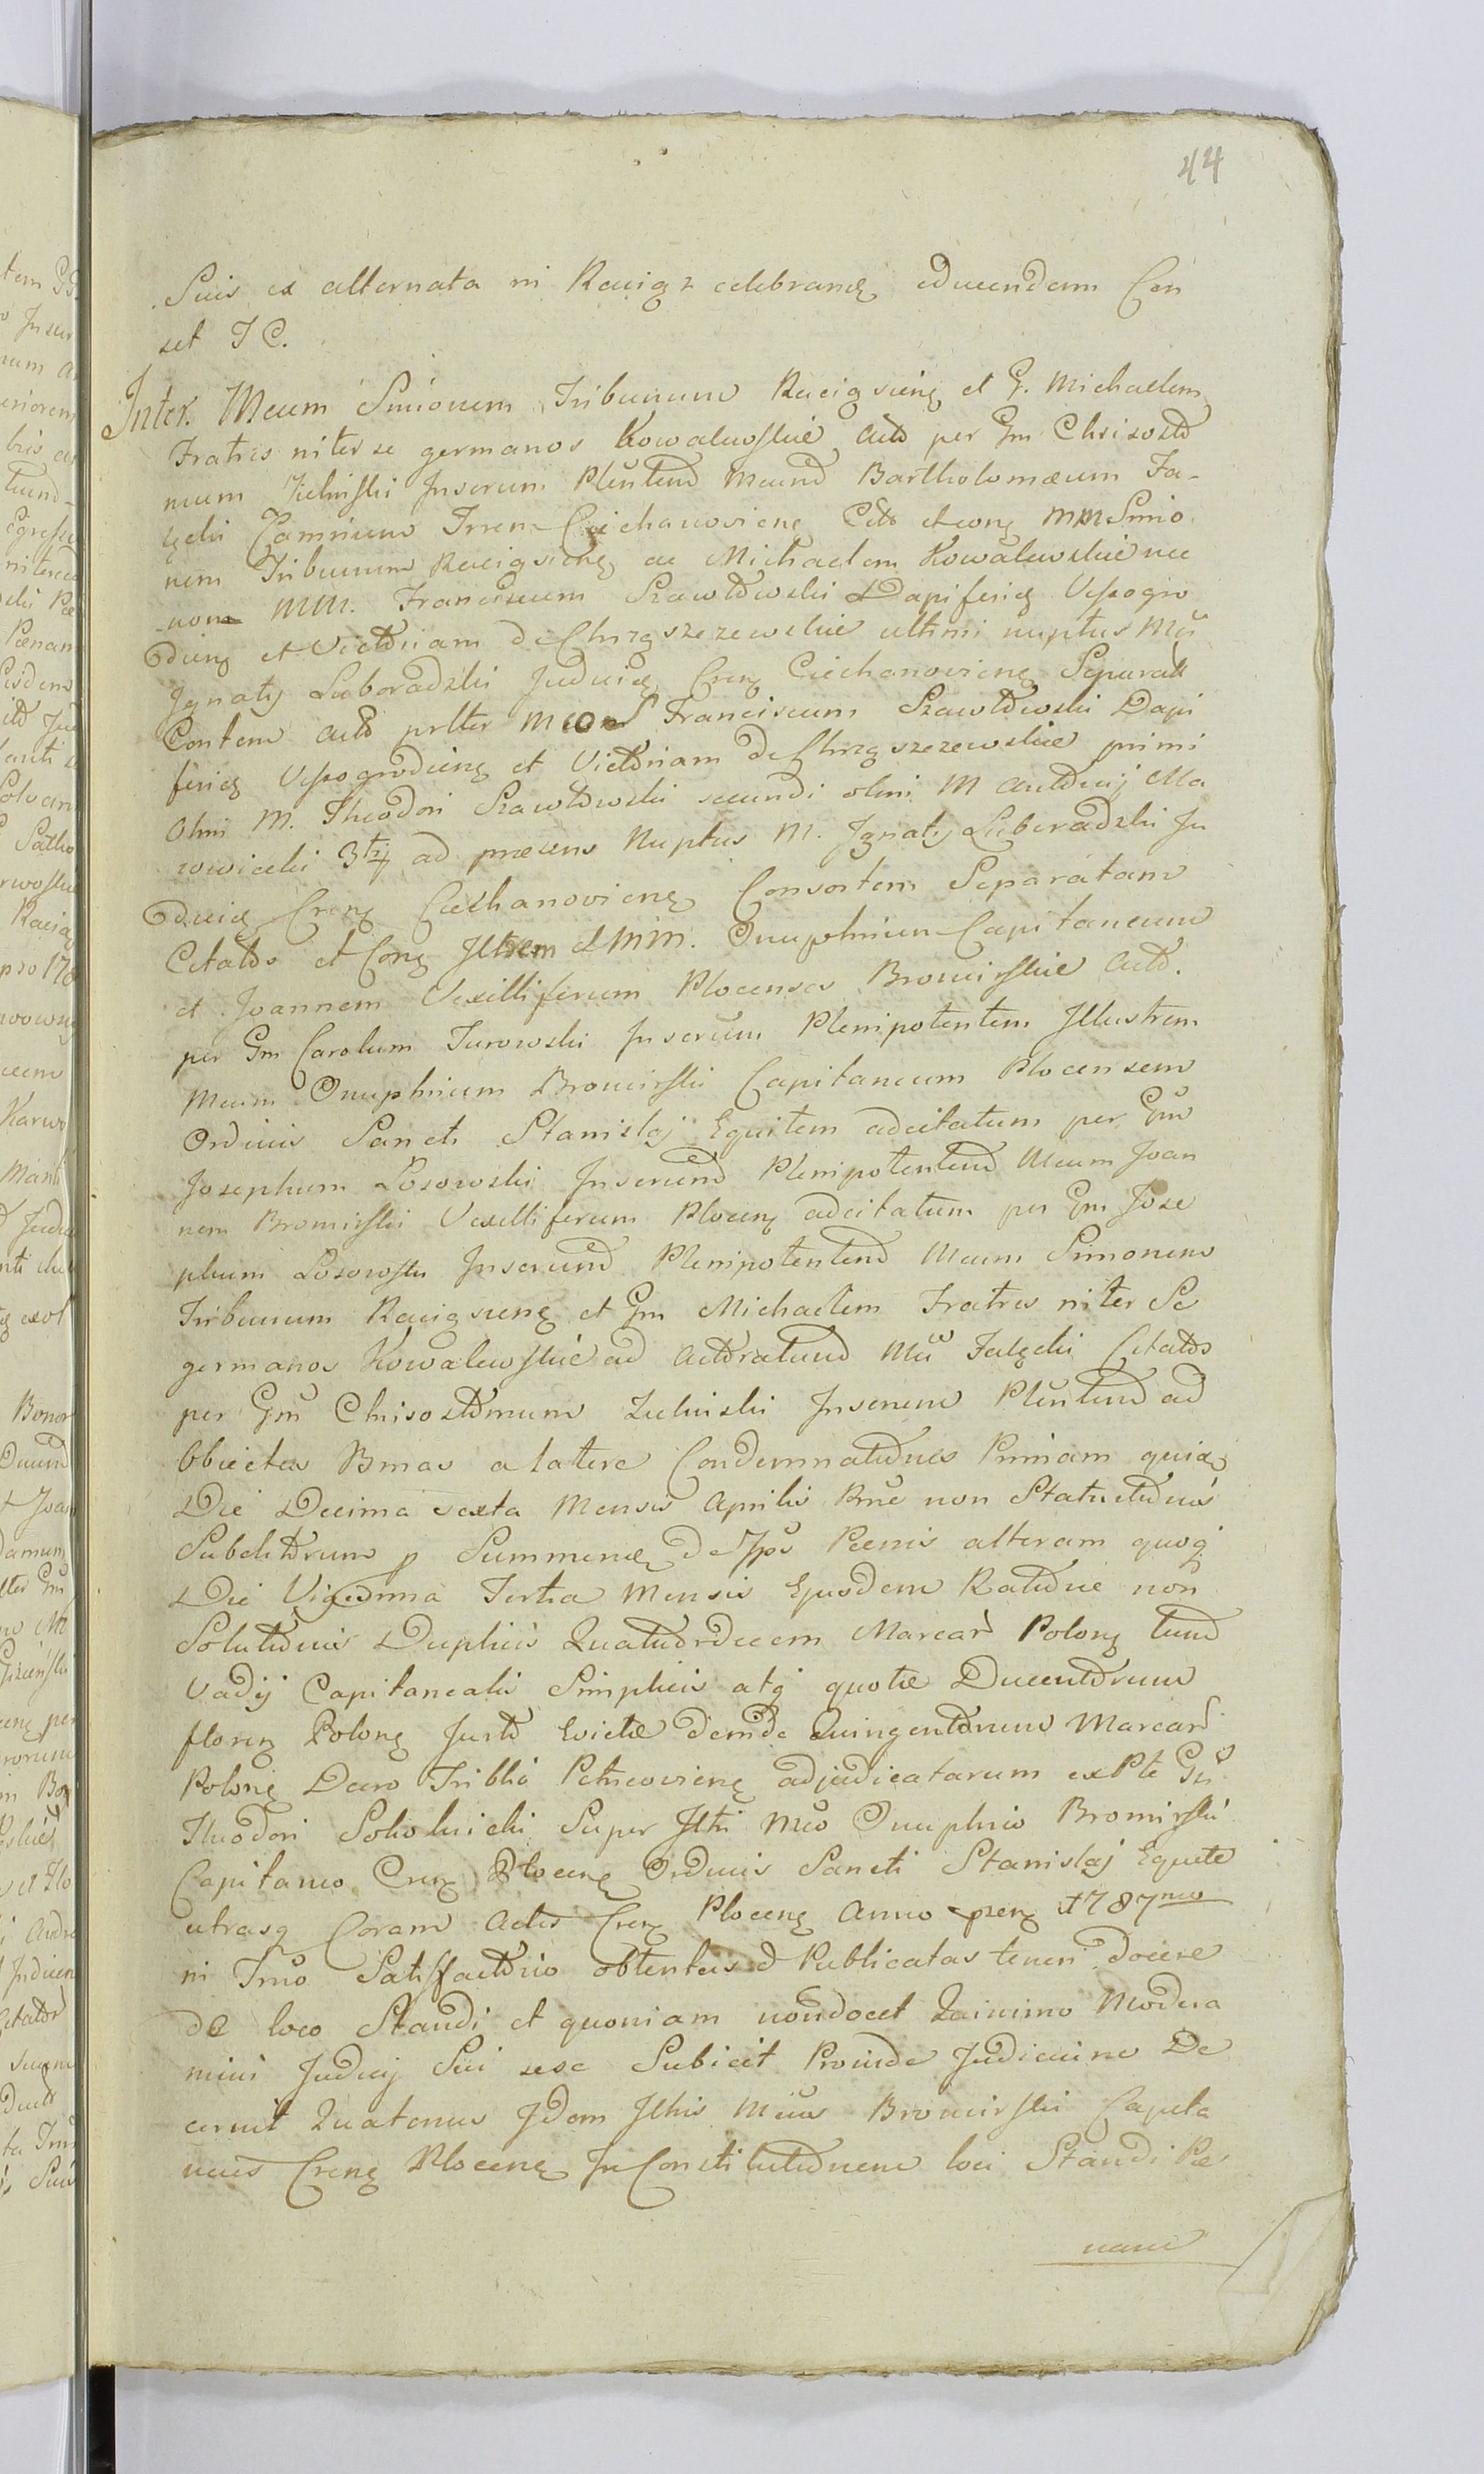 44
Suis ex alternata in Raciąz celebranꝫ educendam Cen
set I C.
Inter Mcum Simonem Tribunum Raciązsienꝫ et G. Michaelem
Fratres inter se germanos Kowalewskie Acto per Gm Chrisosto
mum Zielinski Juserum Plentend Mcund Bartholomæum Fa-
łęcki Camrium Trren Ciechanovienꝫ Cito et conꝫ MM Simo
nem Tribunum Raciązsienꝫ ac Michaelem Kowalewskie nec
non MM. Franciscum Szawłowski Dapiferiꝫ Vyszogro
dienꝫ et Victoriam de Chrząszczewskie ultimi nuptus Mci
Ignatij Luberadzki Judiciꝫ Crenꝫ Ciechanovienꝫ Separatt
Contem Acto prtter Franciscum Szawłowski Dapi
feriꝫ Vyszogrodienꝫ et Victoriam de Chrząszczewskie primi
Olim M. Theodori Szawłowski secundi olim M Antonij Ma
zowiecki 3tij ad præsens Nuptus M. Ignatij Luberadzki Ju
diciꝫ Crenꝫ Ciechanovienꝫ Consortem Separatam
Citatos et Conꝫ Jlltrem et MM. Onuphrium Capitaneum
et Joannem Vexilliferum Plocenses Bromirskie Acto.
per Gm Carolum Turowski Juserum Plenipotentem Jllustrem
Mcum Onuphrium Bromirski Capitaneum Plocensem
Ordinis Sancti Stanislaj Equitem adcitatum per Gm
Josephum Łosowski Juserund Plenipotentend Mcum Joan
nem Bromirski Vexilliferum Plocenꝫ adcitatum per Gm Jose
phum Łosowski Juserund Plenipotentend Mcum Simonem
Tribunum Raciązsienꝫ et Gm Michaelem Fratres inter Se
germanos Kowalewskie ad Actoratund Mci Fałęcki Citatos
per Gm Chrisostomum Zielinski Juserum Plentend ad
Obiectas Bmas a latere Condemnationes Primam quidꝫ
Die Decima sexta Mensis Aprilis Rne non Statuitionis
Subditorum p Summenꝫ de Ipos Pœnis alteram quoq
Die Vigesima Tertia Mensis Ejusdem Ratione non
Solutionis Duplicis Quatuordecem Marcar Polonꝫ tund
Vadij Capitanealis Simplicis atq quotæ Ducentorum
florenꝫ Polonꝫ Justo Evictæ deinde Quingentorum Marcar
Polonꝫ Decro Tribbli Petricovienꝫ adjudicatarum ex Pte Gn
Theodori Sokolnicki Super Jltri Mco Onuphrio Bromirski
Capitaneo Crenꝫ Plocenꝫ Ordinis Sancti Stanislaj Equite
utrasq Coram Actis Crenꝫ Plocenꝫ Anno prænꝫ 1787mo
in Tmo Satisfactorio obtentas et Publicatas teneri docere
de loco Standi et quoniam non docet Quinimo Modera
mini Judicij Sui sese Subiecit Proinde Judicium De
cernit Quatenus Idem Jlltris Mcus Bromirski Capita
neus Crenꝫ Plocenꝫ In Constitutionem loci Standi Pœ
nam